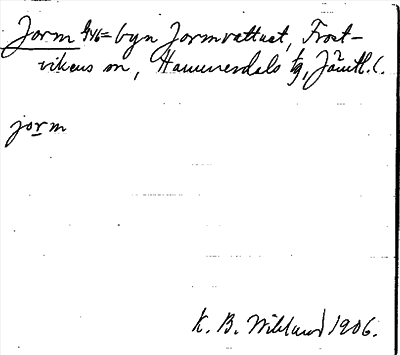 Jorm = byn Jormvattnet, Frost-
vikens sn, Hammerdals tg, Jämtl. l.
jorm
K. B. Wiklund 1906.